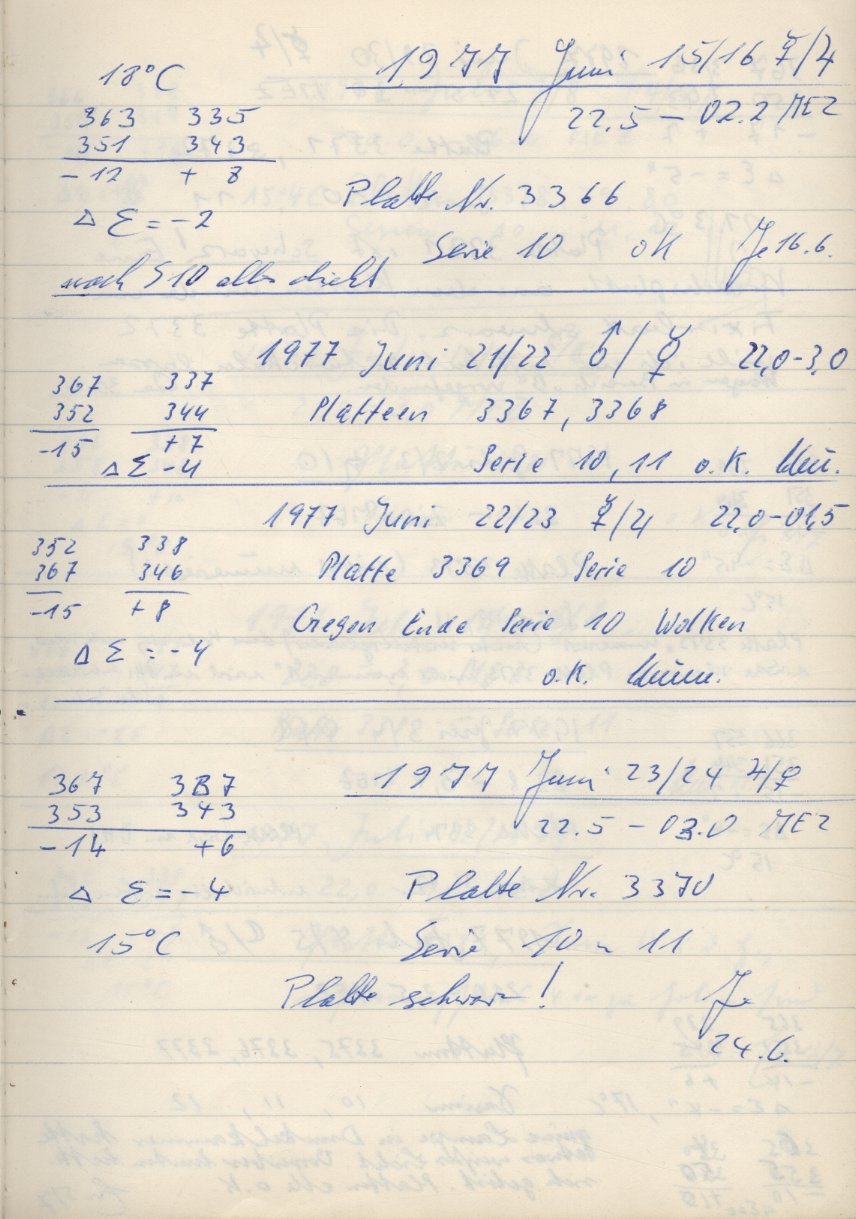 18°C 1977 Juni 15/16 ☿/♃
363 335 22.5 – 02.2 MEZ
351 343
-12 + 8 Platte Nr. 3366
Δ Σ = -2 Serie 10 ok Je 16.6.
nach S10 alles dicht
1977 Juni 21/22 ♂/☿ 22,0-3,0
367 337
352 344 Platteen 3367, 3368
-15 +7
Δ Σ -4 Serie 10, 11 o.K.
1977 Juni 22/23 ☿/♃ 22,0-01,5
352 338
367 346 Platte 3369 Serie 10
-15 + 8 Gegen Ende Serie 10 Wolken
Δ Σ = -4 o.K.
367 337 1977 Juni 23/24 ♃/♀
353 343
-14 +6 22.5 – 03.0 MEZ
Δ Σ = -4 Platte Nr. 3370
15°C Serie 10 u 11
Platte schwarz! Je
24.6.